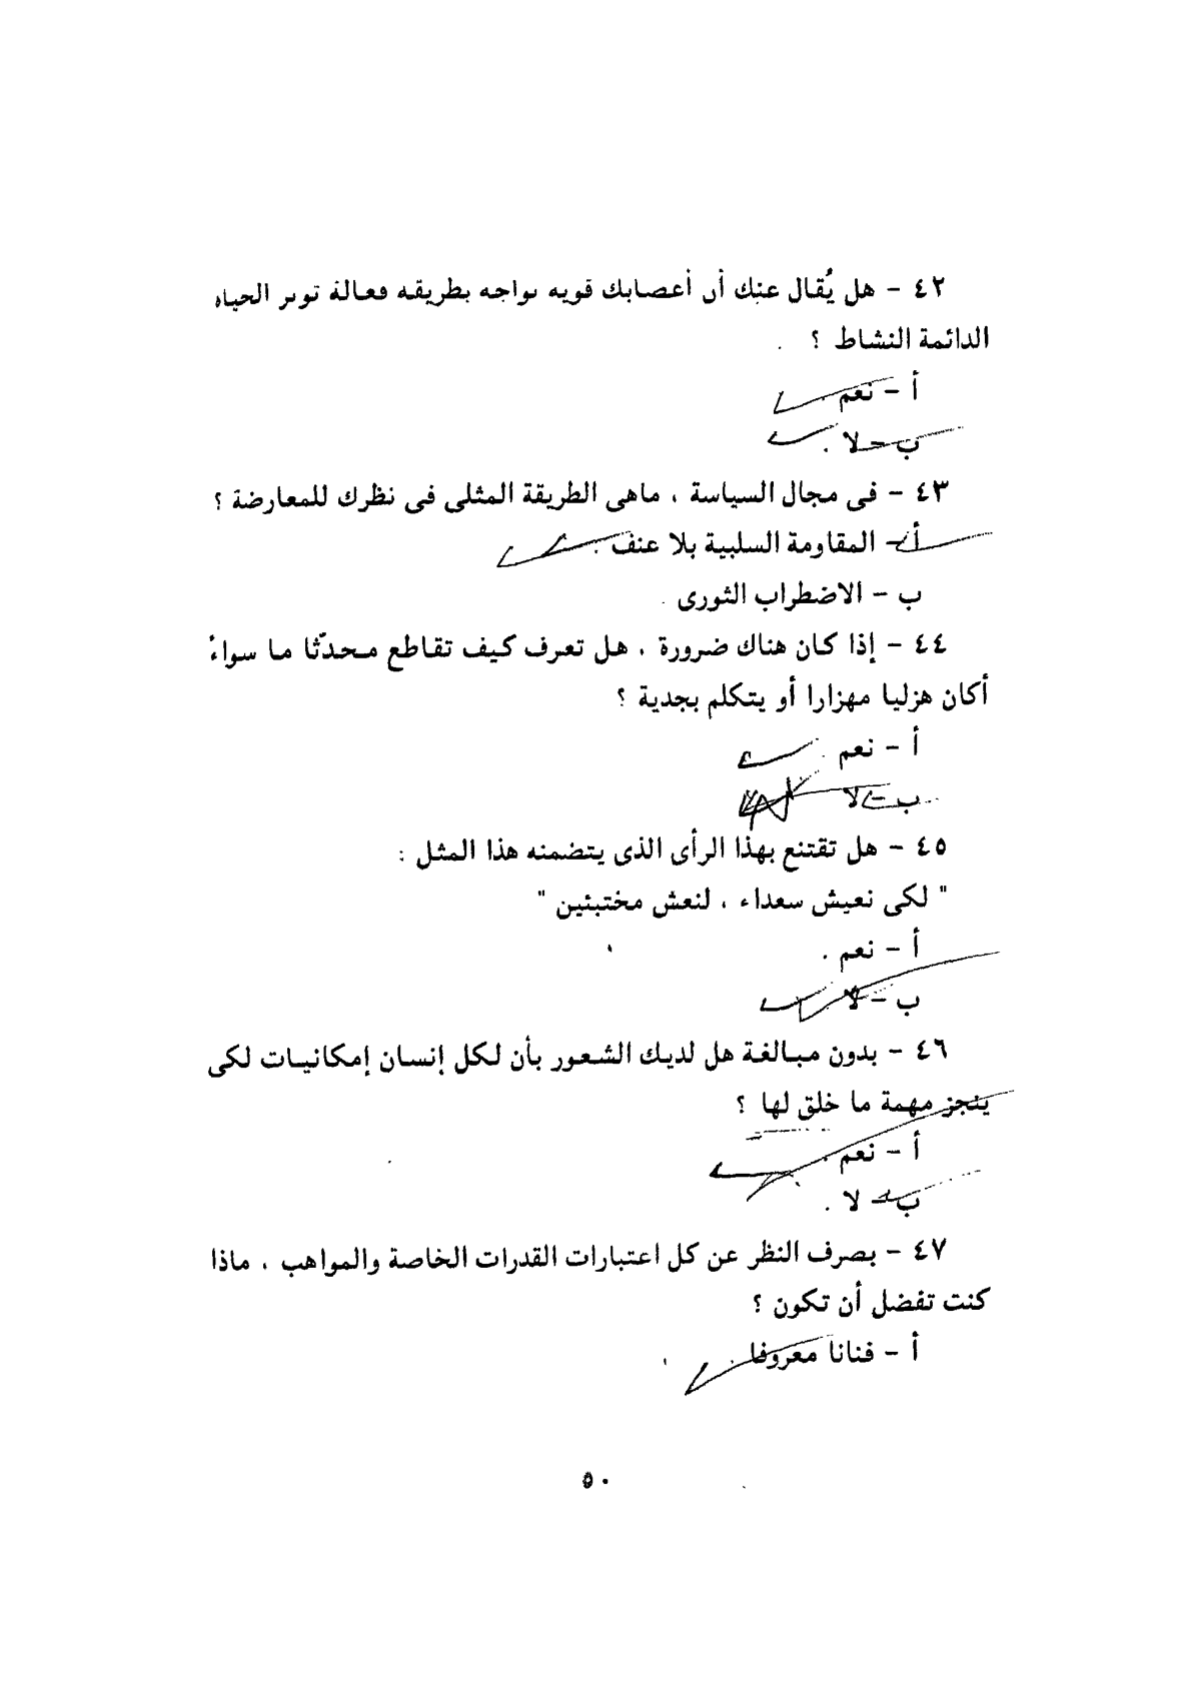 ٤٢ - هل يُقال عنك أن أعصابك قويه تواجه بطريقه فعالة توتر الحياه
الدائمة النشاط ؟
أ - نعم .
ب - لا .
٤٣ - فى مجال السياسة ، ماهى الطريقة المثلى فى نظرك للمعارضة ؟
أ - المقاومة السلبية بلا عنف .
ب - الاضطراب الثورى .
٤٤ - إذا كان هناك ضرورة ، هل تعرف كيف تقاطع محدّثا ما سواءً
أكان هزليا مهزارا أو يتكلم بجدية ؟
أ - نعم .
ب - لا
٤٥ - هل تقتنع بهذا الرأى الذى يتضمنه هذا المثل :
" لكى نعيش سعداء ، لنعش مختبئين "
أ - نعم .
ب - لا .
٤٦ - بدون مبالغة هل لديك الشعور بأن لكل إنسان إمكانيات لكى
ينجز مهمة ما خلق لها ؟
أ - نعم .
ب - لا .
٤٧ - بصرف النظر عن كل اعتبارات القدرات الخاصة والمواهب ، ماذا
كنت تفضل أن تكون ؟
أ - فنانا معروفا .
٥٠